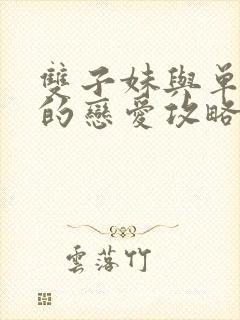 雙子妹與單
的戀愛攻略
雲落竹